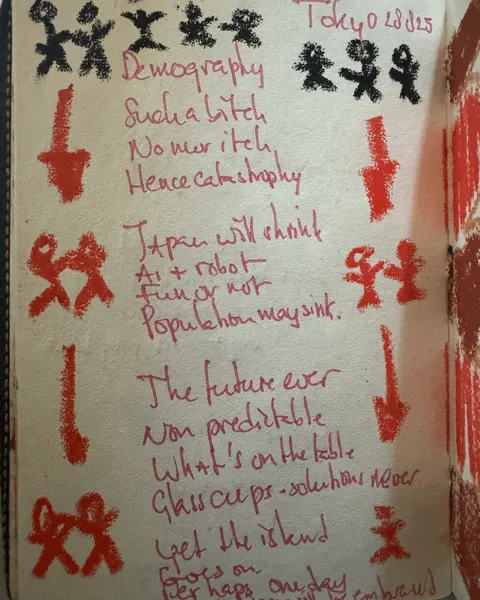 Tokyo 28825
Demography
Such a bitch
No mur itch,
Hence catastrophy
Japan will shrink
Ai + robot
Fun or not
Population may sink.
The future ever
Non predictable
What's on the table
Glass cups - solutions never
Yet the island
Goes on
Perhaps one day
embraced